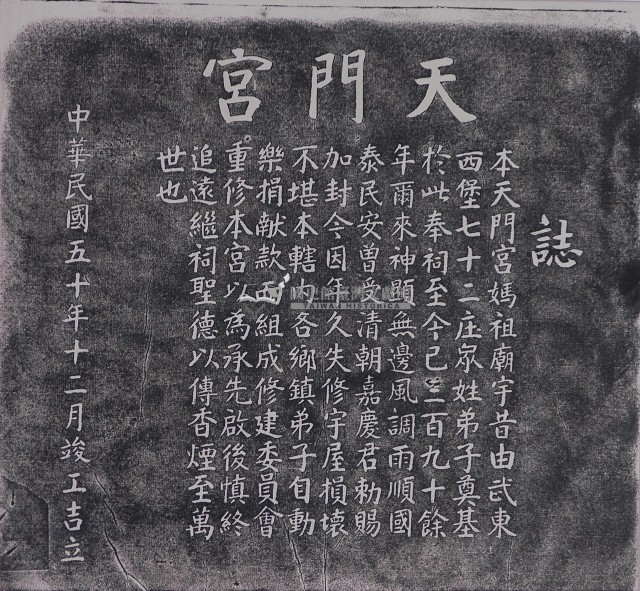 天門宮
誌
本天門宮媽祖廟宇昔由武東
西堡七十二庄眾姓弟子奠基
於此奉祠至今已二百九十餘
年爾來神顯無邊風調雨順國
泰民安曾受清朝嘉慶君勅賜
加封今因年久失修宇屋損壞
不堪本轄內各鄉鎮弟子自動
樂捐献款而組成修建委員會
重修本宮以為承先啟後慎終
追遠繼祠聖德以傳香煙至萬
世也
中華民國五十年十二月竣工吉立
TAIWAN HISTORICA